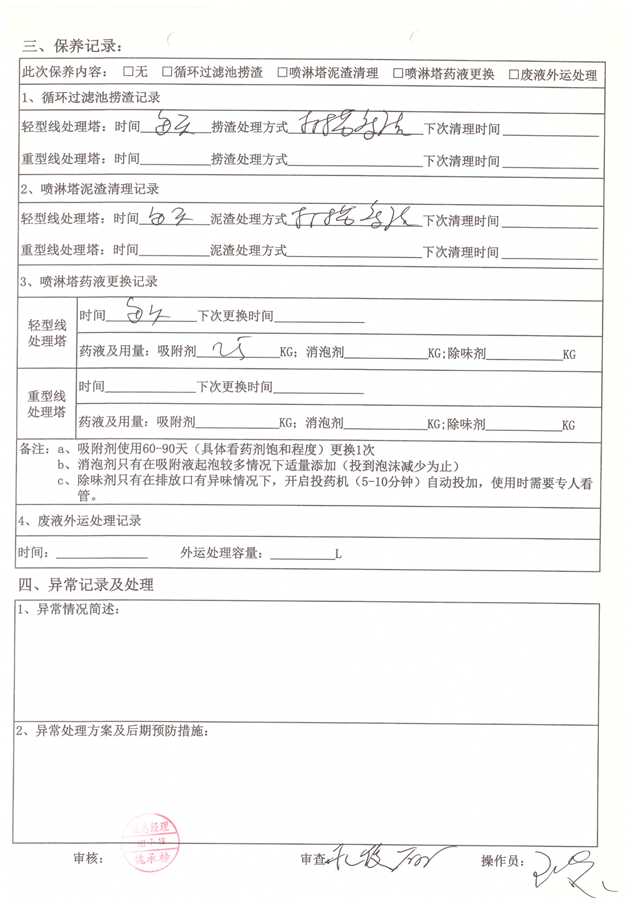 三、保养记录：
此次保养内容： □无 □循环过滤池捞渣 □喷淋塔泥渣清理 □喷淋塔药液更换 □废液外运处理
1、循环过滤池捞渣记录
轻型线处理塔：时间 捞渣处理方式 下次清理时间
重型线处理塔：时间 捞渣处理方式 下次清理时间
2、喷淋塔泥渣清理记录
轻型线处理塔：时间 泥渣处理方式 下次清理时间
重型线处理塔：时间 泥渣处理方式 下次清理时间
3、喷淋塔药液更换记录
轻型线
处理塔
时间 下次更换时间
药液及用量：吸附剂 25 KG；消泡剂 KG;除味剂 KG
重型线
处理塔
时间 下次更换时间
药液及用量：吸附剂 KG；消泡剂 KG;除味剂 KG
备注：a、吸附剂使用60-90天（具体看药剂饱和程度）更换1次
b、消泡剂只有在吸附液起泡较多情况下适量添加（投到泡沫减少为止）
c、除味剂只有在排放口有异味情况下，开启投药机（5-10分钟）自动投加，使用时需要专人看
管。
4、废液外运处理记录
时间： 外运处理容量： L
四、异常记录及处理
1、异常情况简述：
2、异常处理方案及后期预防措施：
经理
审核： 审查 操作员：